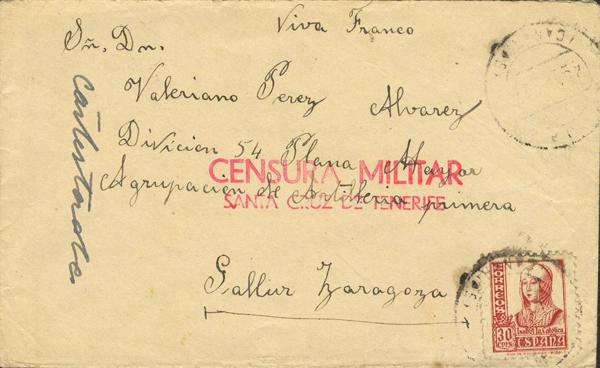 Viva Franco
Sr. Dn.
Valeriano Perez Alvarez
Divicion 54 Plana Mayor
CENSURA MILITAR
Agrupacion de Artilleria primera
SANTA CRUZ DE TENERIFE
Gallur Zaragoza
contestada
30
CTS
Isabel la Católica
ESPAÑA